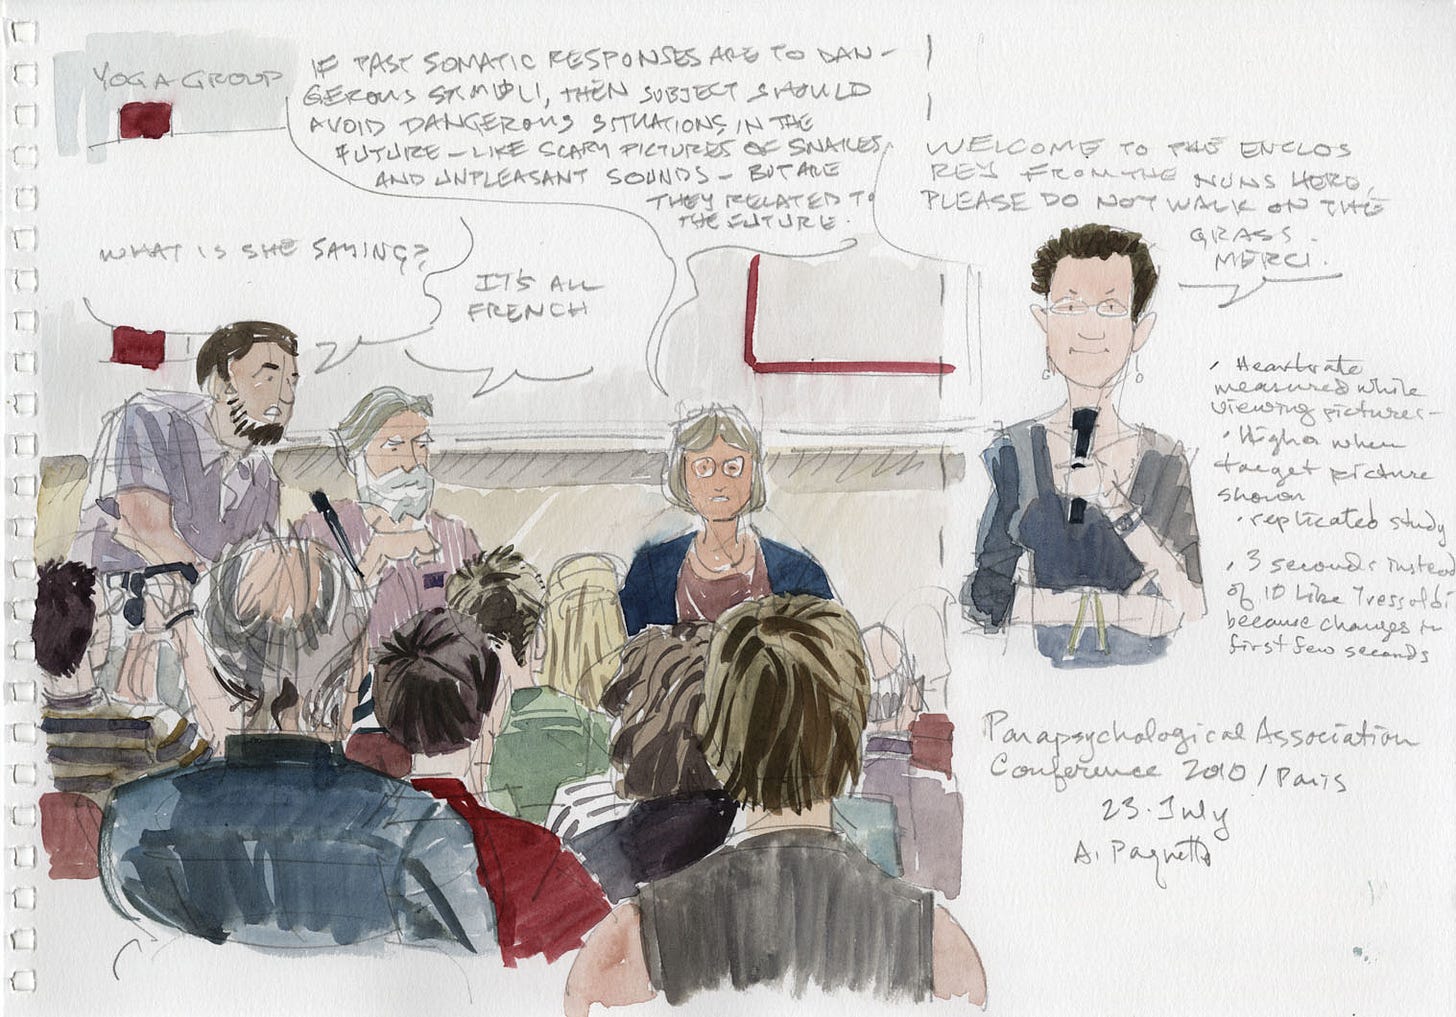 YOGA GROUP
IF PAST SOMATIC RESPONSES ARE TO DAN-
GEROUS STIMULI, THEN SUBJECT SHOULD
AVOID DANGEROUS SITUATIONS, IN THE
FUTURE – LIKE SCARY PICTURES OF SNAKES,
AND UNPLEASANT SOUNDS – BUT ARE
THEY RELATED TO
THE FUTURE.
WHAT IS SHE SAYING?
IT'S ALL
FRENCH
WELCOME TO THE ENCLOS
REY FROM THE NUNS HERE,
PLEASE DO NOT WALK ON THE
GRASS.
MERCI.
· Heartrate
measured while
viewing pictures –
· Higher when
target picture
shown
· replicated study
· 3 seconds instead
of 10 like Tressoldi
because changes in
first few seconds
Parapsychological Association
Conference 2010 / Paris
23 · July
A. Paquette